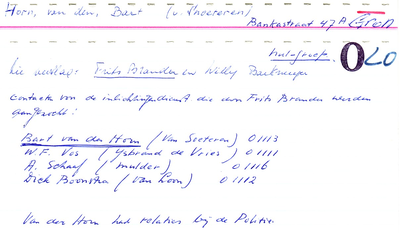 Horn, van den, Bart (v. Soeteren)
Bankastraat 47A Gron
Hulpgroep.
OLO
Zie verslag: Frits Brander en Willy Barkmeyer
Contacten van de inlichtingendienst die door Frits Brander werden
aangezocht:
Bart van den Horn (Van Soeteren) 01113
W.F. Vos (IJsbrand de Vries) 01111
A. Schaaf (Mulder) 01116
Dick Boonstra (van Loon) 01112
Van der Horn had relaties bij de Politie